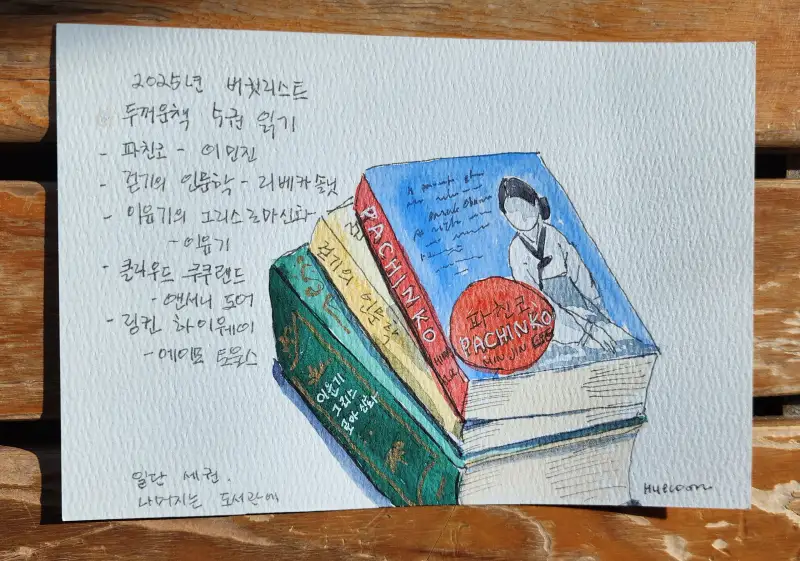 2025년 버킷리스트
두꺼운책 5권 읽기
- 파친코 - 이민진
- 걷기의 인문학 - 리베카솔닛
- 이윤기의 그리스로마신화
- 이윤기
- 클라우드 쿠쿠랜드
- 앤서니 도어
- 링컨 하이웨이
- 에이모 토울스
PACHINKO
걷기의 인문학
이윤기
그리스
로마신화
파친코
PACHINKO
MIN JIN
일단 세권.
나머지는 도서관에